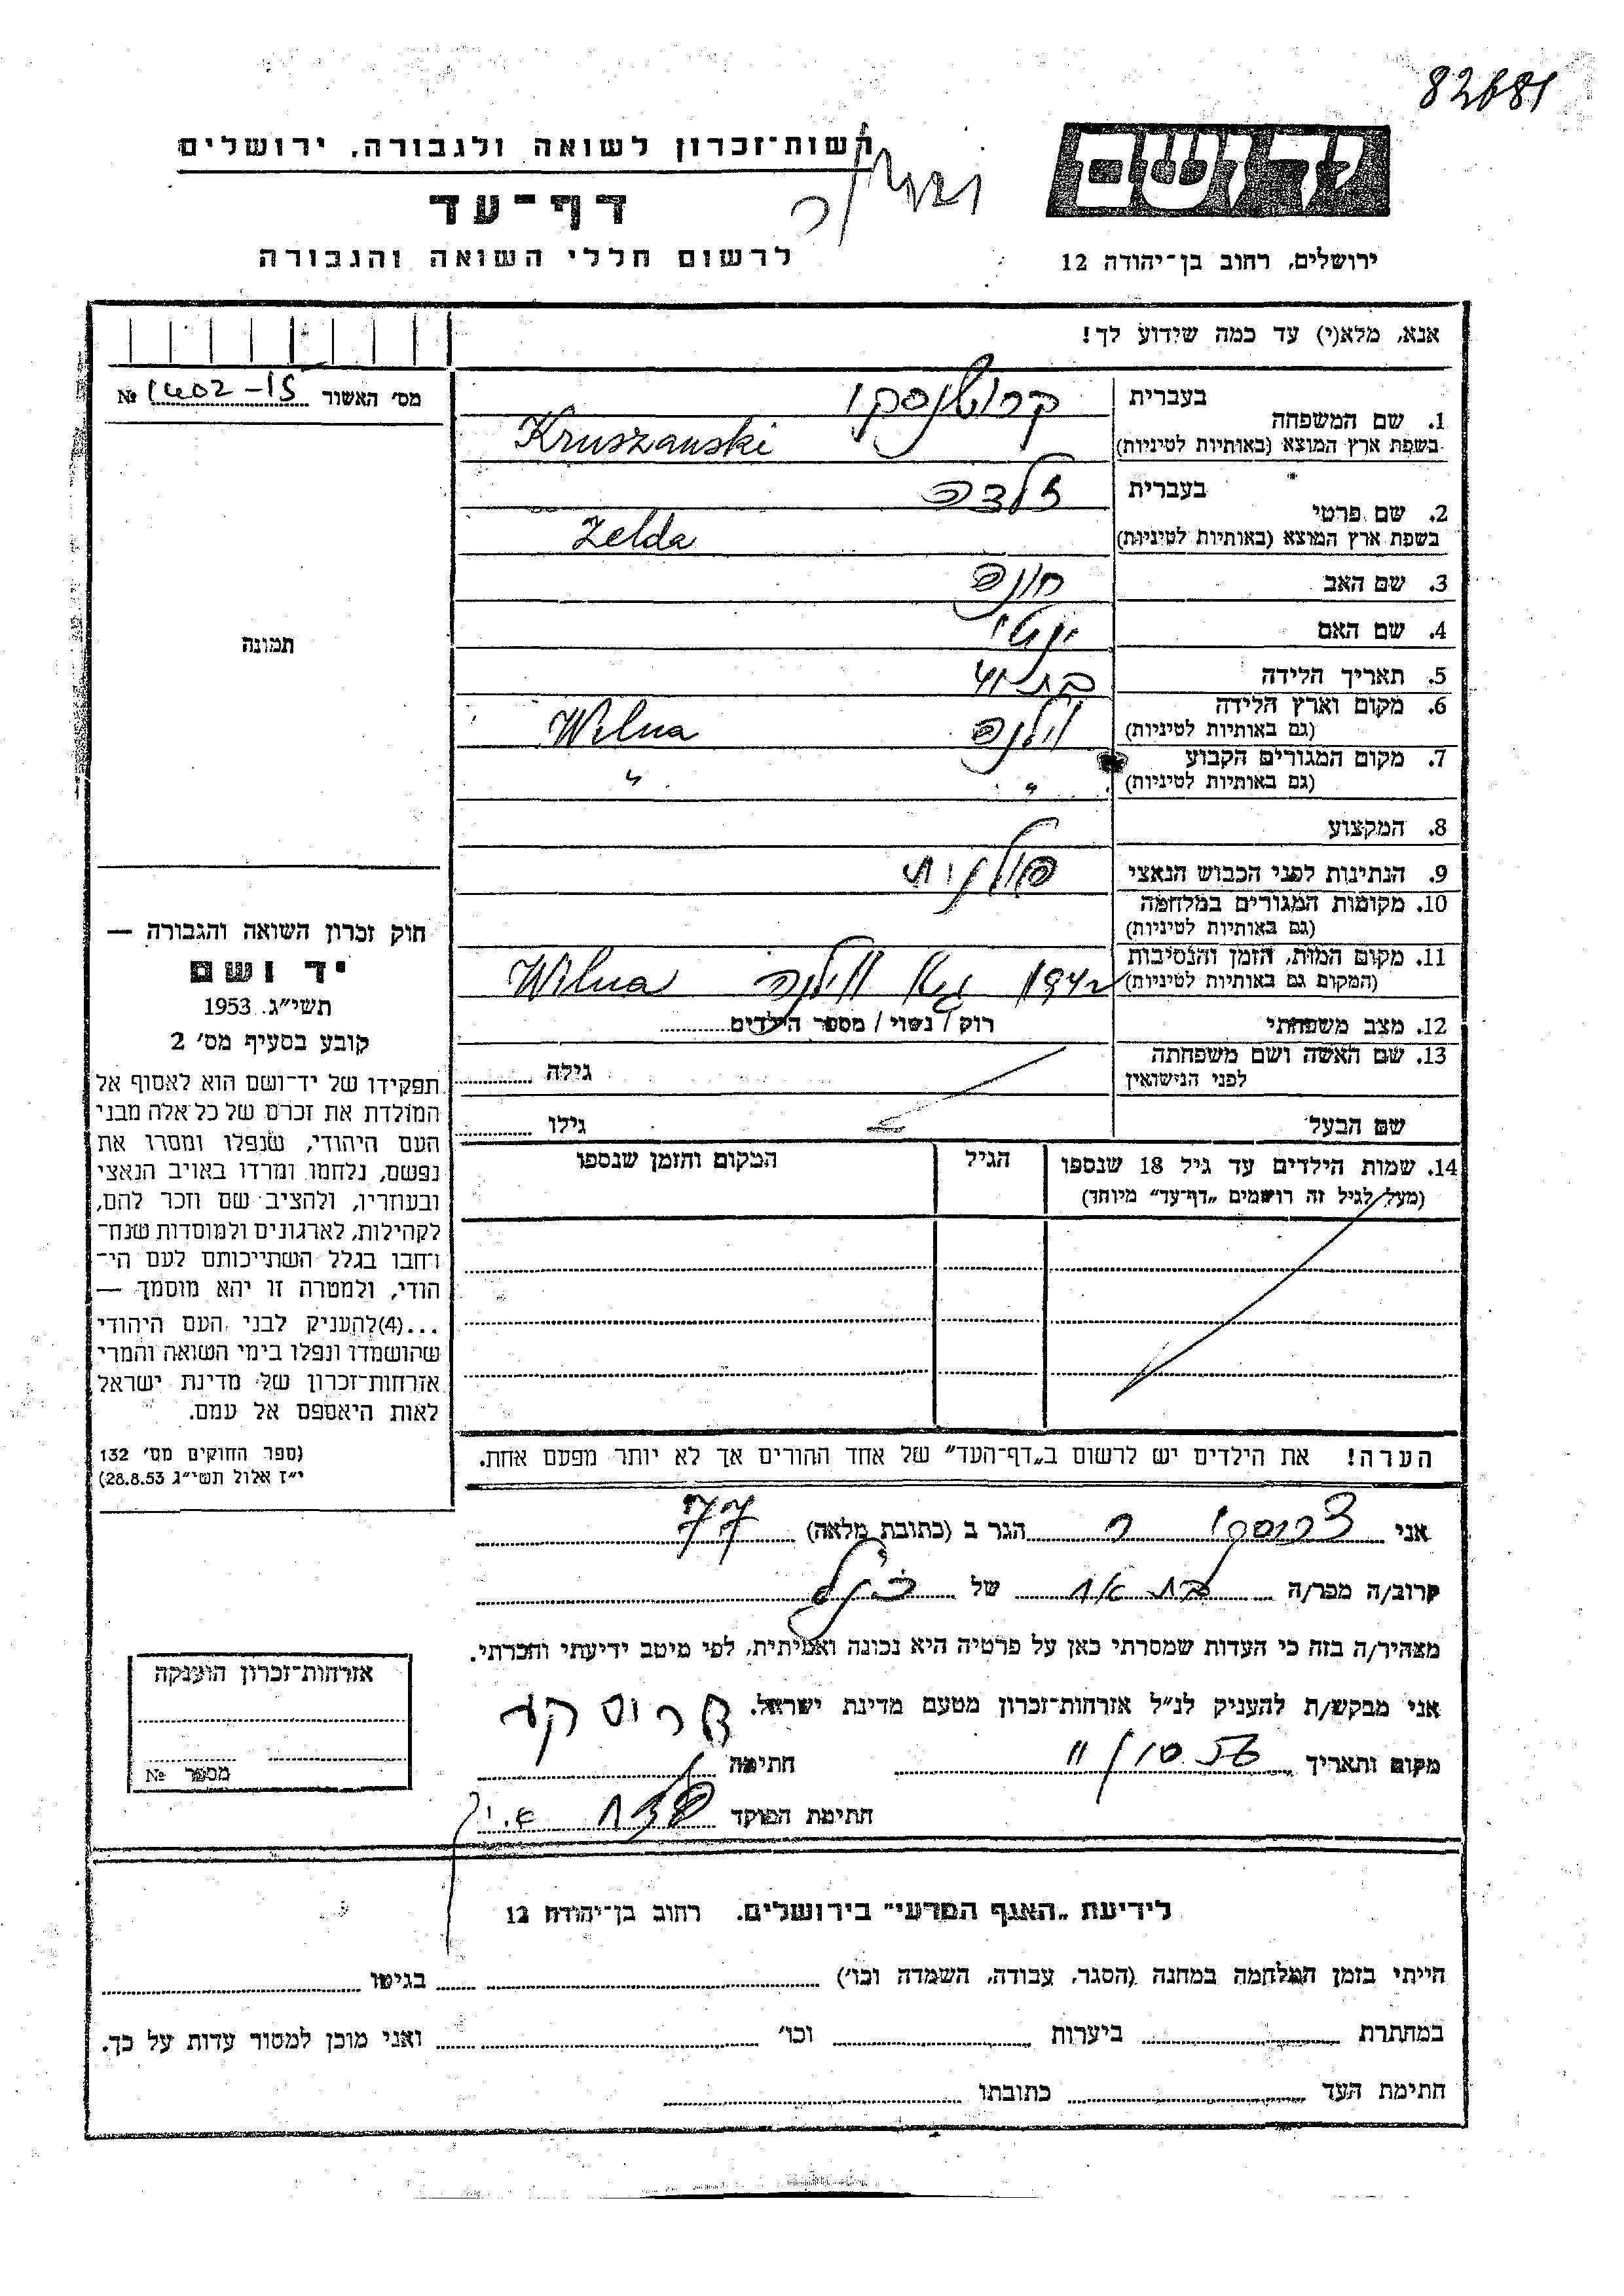 82681
רשות־זכרון לשואה ולגבורה, ירושלים
יד ושם
דף־עד
ירושלים, רחוב בן־יהודה 12
לרשום חללי השואה והגבורה
אנא, מלא(י) עד כמה שידוע לך!
מס׳ האשור № 1402-15
1. שם המשפחה
בעברית
בשפת ארץ המוצא (באותיות לטיניות) Kruszanski
2. שם פרטי
בעברית זלדה
בשפת ארץ המוצא (באותיות לטיניות) Zelda
3. שם האב חונה
4. שם האם
5. תאריך הלידה בת
6. מקום וארץ הלידה
(גם באותיות לטיניות) וילנה Wilna
7. מקום המגורים הקבוע
(גם באותיות לטיניות) " "
8. המקצוע
9. הנתינות לפני הכבוש הנאצי פולנית
10. מקומות המגורים במלחמה
(גם באותיות לטיניות)
11. מקום המות, הזמן והנסיבות
(המקום גם באותיות לטיניות) וילנה Wilna
12. מצב משפחתי רוק / נשוי / מספר הילדים
13. שם האשה ושם משפחתה
לפני הנישואין
גילה
שם הבעל גילו
14. שמות הילדים עד גיל 18 שנספו
(מעל לגיל זה רושמים „דף־עד" מיוחד)
הגיל
המקום והזמן שנספו
הערה! את הילדים יש לרשום ב„דף־העד" של אחד ההורים אך לא יותר מפעם אחת.
תמונה
חוק זכרון השואה והגבורה —
יד ושם
תשי״ג, 1953
קובע בסעיף מס׳ 2
תפקידו של יד־ושם הוא לאסוף אל
המולדת את זכרם של כל אלה מבני
העם היהודי, שנפלו ומסרו את
נפשם, נלחמו ומרדו באויב הנאצי
ובעוזריו, ולהציב שם וזכר להם,
לקהילות, לארגונים ולמוסדות שנח־
רבו בגלל השתייכותם לעם הי־
הודי, ולמטרה זו יהא מוסמך —
...(4)להעניק לבני העם היהודי
שהושמדו ונפלו בימי השואה והמרי
אזרחות־זכרון של מדינת ישראל
לאות היאספם אל עמם.
(ספר החוקים מס׳ 132
י״ז אלול תשי״ג 28.8.53)
אני הגר ב (כתובת מלאה)
קרוב/ה מכר/ה של
מצהיר/ה בזה כי העדות שמסרתי כאן על פרטיה היא נכונה ואמיתית, לפי מיטב ידיעתי והכרתי.
אני מבקש/ת להעניק לנ״ל אזרחות־זכרון מטעם מדינת ישראל.
מקום ותאריך חתימה
חתימת הפוקד
אזרחות־זכרון הוענקה
מספר №
לידיעת „האגף המדעי" בירושלים, רחוב בן־יהודה 12
הייתי בזמן המלחמה במחנה (הסגר, עבודה, השמדה וכו׳) בגיטו
במחתרת ביערות וכו׳ ואני מוכן למסור עדות על כך.
חתימת העד כתובתו